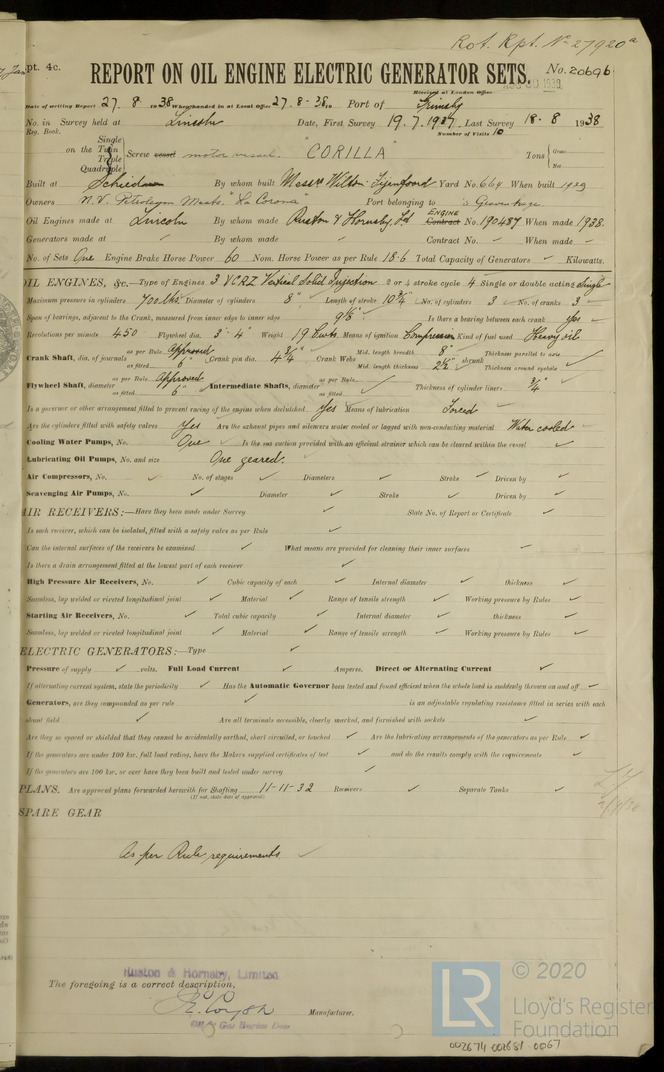 Rot. Rpt. No 27920a
Rpt. 4c.
REPORT ON OIL ENGINE ELECTRIC GENERATOR SETS.
No. 20696
Received at London Office
Date of writing Report 27. 8. 1938 When handed in at Local Office 27-8-38 Port of Grimsby
No. in Survey held at Lincoln Date, First Survey 19.7.1937 Last Survey 18-8 1938
Reg. Book. Number of Visits 10
Single
on the Twin Screw vessel motor vessel. "CORILLA" Tons Gross
Triple Net
Quadruple
Built at Schiedam By whom built Messrs Wilton Fijenoord Yard No. 664 When built 1939
Owners N.V. Petroleum Maats. "La Corona" Port belonging to 's Gravenhage
Oil Engines made at Lincoln By whom made Ruston & Hornsby, Ltd ENGINE Contract No. 190487 When made 1938.
Generators made at By whom made Contract No. When made
No. of Sets One Engine Brake Horse Power 60 Nom. Horse Power as per Rule 18.6 Total Capacity of Generators Kilowatts.
OIL ENGINES, &c.—Type of Engines 3 VCRZ Vertical Solid Injection 2 or 4 stroke cycle 4 Single or double acting Single
Maximum pressure in cylinders 700 lbs. Diameter of cylinders 8" Length of stroke 10 3/4" No. of cylinders 3 No. of cranks 3
Span of bearings, adjacent to the Crank, measured from inner edge to inner edge Is there a bearing between each crank yes
Revolutions per minute 450 Flywheel dia. 3'-4" Weight 19 Cwts. Means of ignition Compression Kind of fuel used Heavy oil
Crank Shaft, dia. of journals as per Rule Approved as fitted 6" Crank pin dia. 4 3/4" Crank Webs Mid. length breadth 8" Mid. length thickness 2 1/2" shrunk Thickness parallel to axis Thickness around eyehole
Flywheel Shaft, diameter as per Rule Approved as fitted 6" Intermediate Shafts, diameter as per Rule as fitted Thickness of cylinder liners 3/4"
Is a governor or other arrangement fitted to prevent racing of the engine when declutched Yes Means of lubrication Forced
Are the cylinders fitted with safety valves Yes Are the exhaust pipes and silencers water cooled or lagged with non-conducting material Water cooled
Cooling Water Pumps, No. One Is the sea suction provided with an efficient strainer which can be cleared within the vessel
Lubricating Oil Pumps, No. and size One geared.
Air Compressors, No. No. of stages Diameters Stroke Driven by
Scavenging Air Pumps, No. Diameter Stroke Driven by
AIR RECEIVERS:—Have they been made under Survey State No. of Report or Certificate
Is each receiver, which can be isolated, fitted with a safety valve as per Rule
Can the internal surfaces of the receivers be examined What means are provided for cleaning their inner surfaces
Is there a drain arrangement fitted at the lowest part of each receiver
High Pressure Air Receivers, No. Cubic capacity of each Internal diameter thickness
Seamless, lap welded or riveted longitudinal joint Material Range of tensile strength Working pressure by Rules
Starting Air Receivers, No. Total cubic capacity Internal diameter thickness
Seamless, lap welded or riveted longitudinal joint Material Range of tensile strength Working pressure by Rules
ELECTRIC GENERATORS:—Type
Pressure of supply volts. Full Load Current Amperes. Direct or Alternating Current
If alternating current system, state the periodicity Has the Automatic Governor been tested and found efficient when the whole load is suddenly thrown on and off
Generators, are they compounded as per rule is an adjustable regulating resistance fitted in series with each
shunt field Are all terminals accessible, clearly marked, and furnished with sockets
Are they so spaced or shielded that they cannot be accidentally earthed, short circuited, or touched Are the lubricating arrangements of the generators as per Rule
If the generators are under 100 kw. full load rating, have the Makers supplied certificates of test and do the results comply with the requirements
If the generators are 100 kw. or over have they been built and tested under survey
PLANS. Are approval plans forwarded herewith for Shafting 11-11-32 Receivers Separate Tanks
(If not, state date of approval)
SPARE GEAR
As per Rule requirements
Ruston & Hornsby, Limited
The foregoing is a correct description,
Manufacturer.
LR © 2020
Lloyd's Register
Foundation
002674-002681-0067